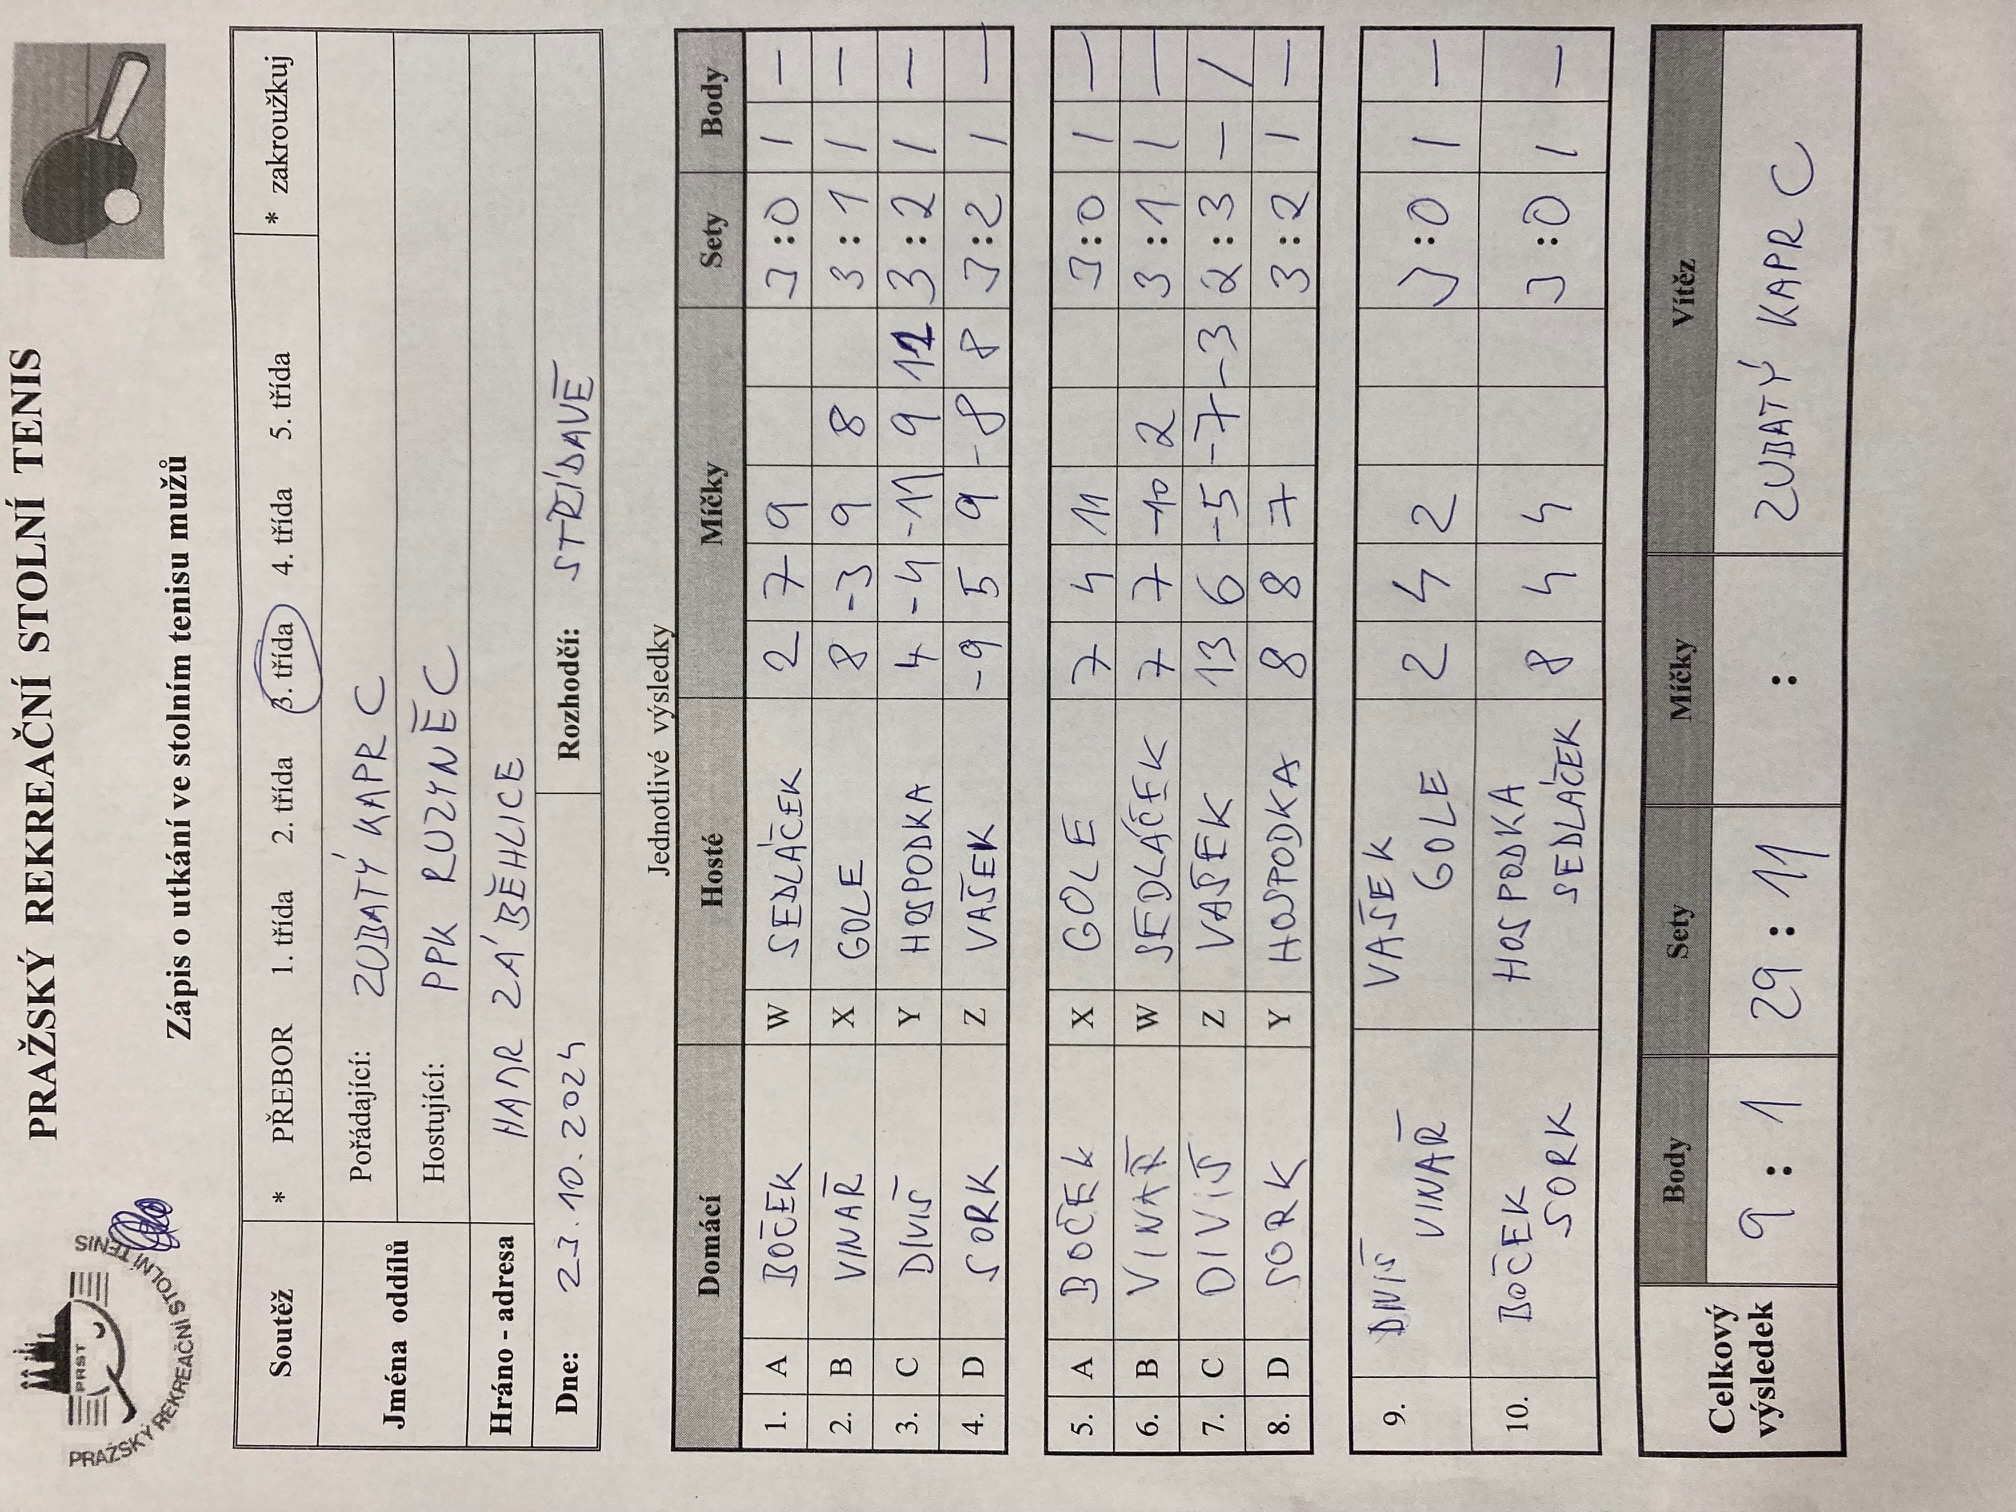 PRAŽSKÝ REKREAČNÍ STOLNÍ TENIS
PRST
PRAŽSKÝ REKREAČNÍ STOLNÍ TENIS
Zápis o utkání ve stolním tenisu mužů
Soutěž * PŘEBOR 1. třída 2. třída 3. třída 4. třída 5. třída * zakroužkuj
Jména oddílů Pořádající: ZUBATÝ KAPR C
Hostující: PPK RUZYNĚ C
Hráno - adresa HAMR ZÁBĚHLICE
Dne: 23.10.2024 Rozhodčí: STŘÍDAVĚ
Jednotlivé výsledky
Domácí Hosté Míčky Sety Body
1. A BOČEK W SEDLÁČEK 2 7 9 3:0 1 –
2. B VINAŘ X GOLE 8 -3 9 8 3:1 1 –
3. C DIVIŠ Y HOSPODKA 4 -4 -11 9 12 3:2 1 –
4. D SORK Z VAŠEK -9 5 9 -8 8 3:2 1 –
5. A BOČEK X GOLE 7 4 11 3:0 1 –
6. B VINAŘ W SEDLÁČEK 7 7 -10 2 3:1 1 –
7. C DIVIŠ Z VAŠEK 13 6 -5 -7 -3 2:3 – 1
8. D SORK Y HOSPODKA 8 8 7 3:2 1 –
9. DIVIŠ VAŠEK 2 4 2 3:0 1 –
VINAŘ GOLE
10. BOČEK HOSPODKA 8 4 4 3:0 1 –
SORK SEDLÁČEK
Celkový výsledek Body Sety Míčky Vítěz
9 : 1 29 : 11 : ZUBATÝ KAPR C